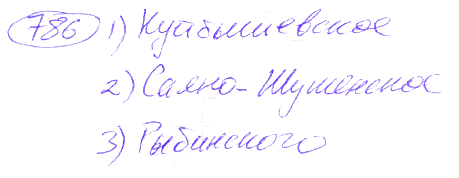 786 1) Куйбышевское
2) Саяно-Шушенское
3) Рыбинского